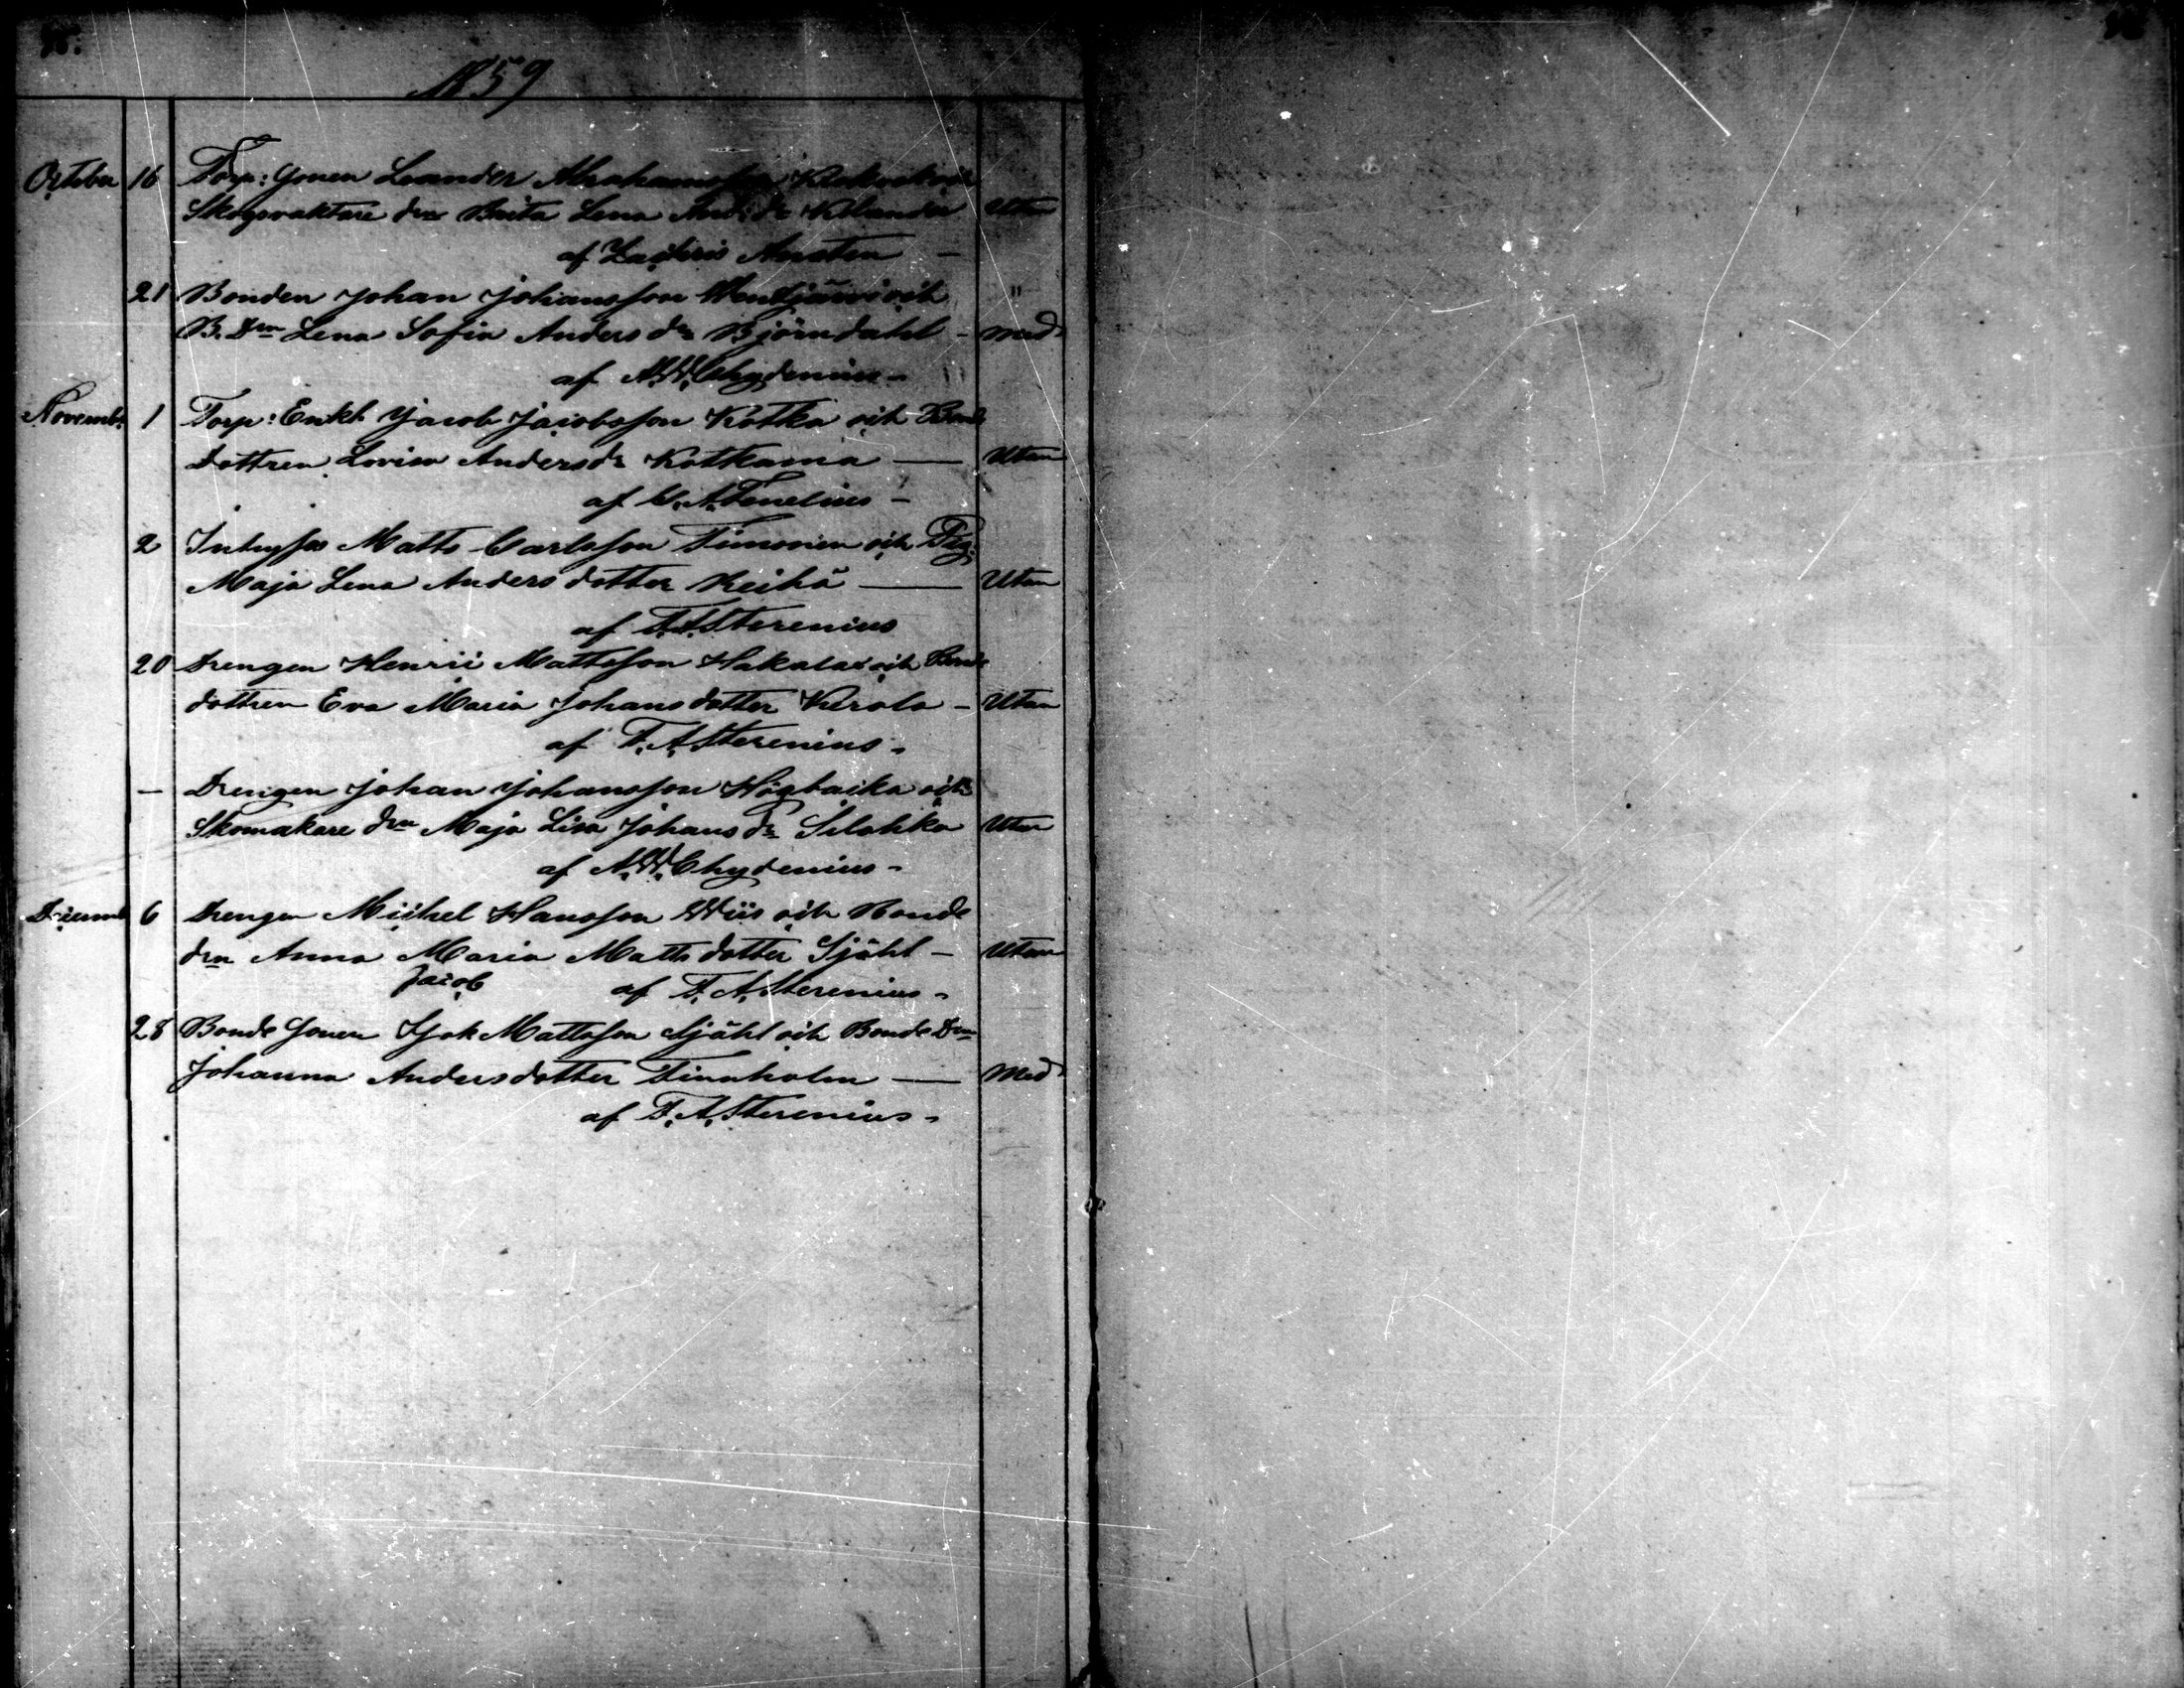 1859
October 16 Torp: Sonen Leander Abrahamsson och
Skogsvaktare drn Brita Lena And: dr Kelander Utan
af Zachris Aisten -
21 Bonden Johan Johansson Wentjärvi och "
B. Drn Lena Sofia Anders dr Björndahl - Med
af A.W. Chydenius -
Novemb. 1 Torp: Enkl. Jacob Jacobsson Kotka och Bonde
Dottren Lovisa Andersdr Kotkama — Utan
af C. A. Fonelius -
2 Inhyses Matts Carlsson Timonen och Pig.
Maja Lena Anders dotter Keihä — Utan
af F.A. Sterenius
20 Drengen Henric Mattsson Hakala och Bonde
dottren Eva Maria Johans dotter Kerola - Utan
af F. A. Sterenius -
— Drengen Johan Johansson Högbacka och
Skomakare drn Maja Lisa Johans dr Silahka Utan
af A. W. Chydenius -
Decemb 6 Drengen Michel Hansson Wiis och Bonde
drn Anna Maria Matts dotter Sjöhl - Utan
Jacob af F. A. Sterenius -
28 Bonde Sonen Isak Mattsson Sjöhl och Bonde Drn
Johanna Andersdotter Finnholm — Med
af F. A. Sterenius -